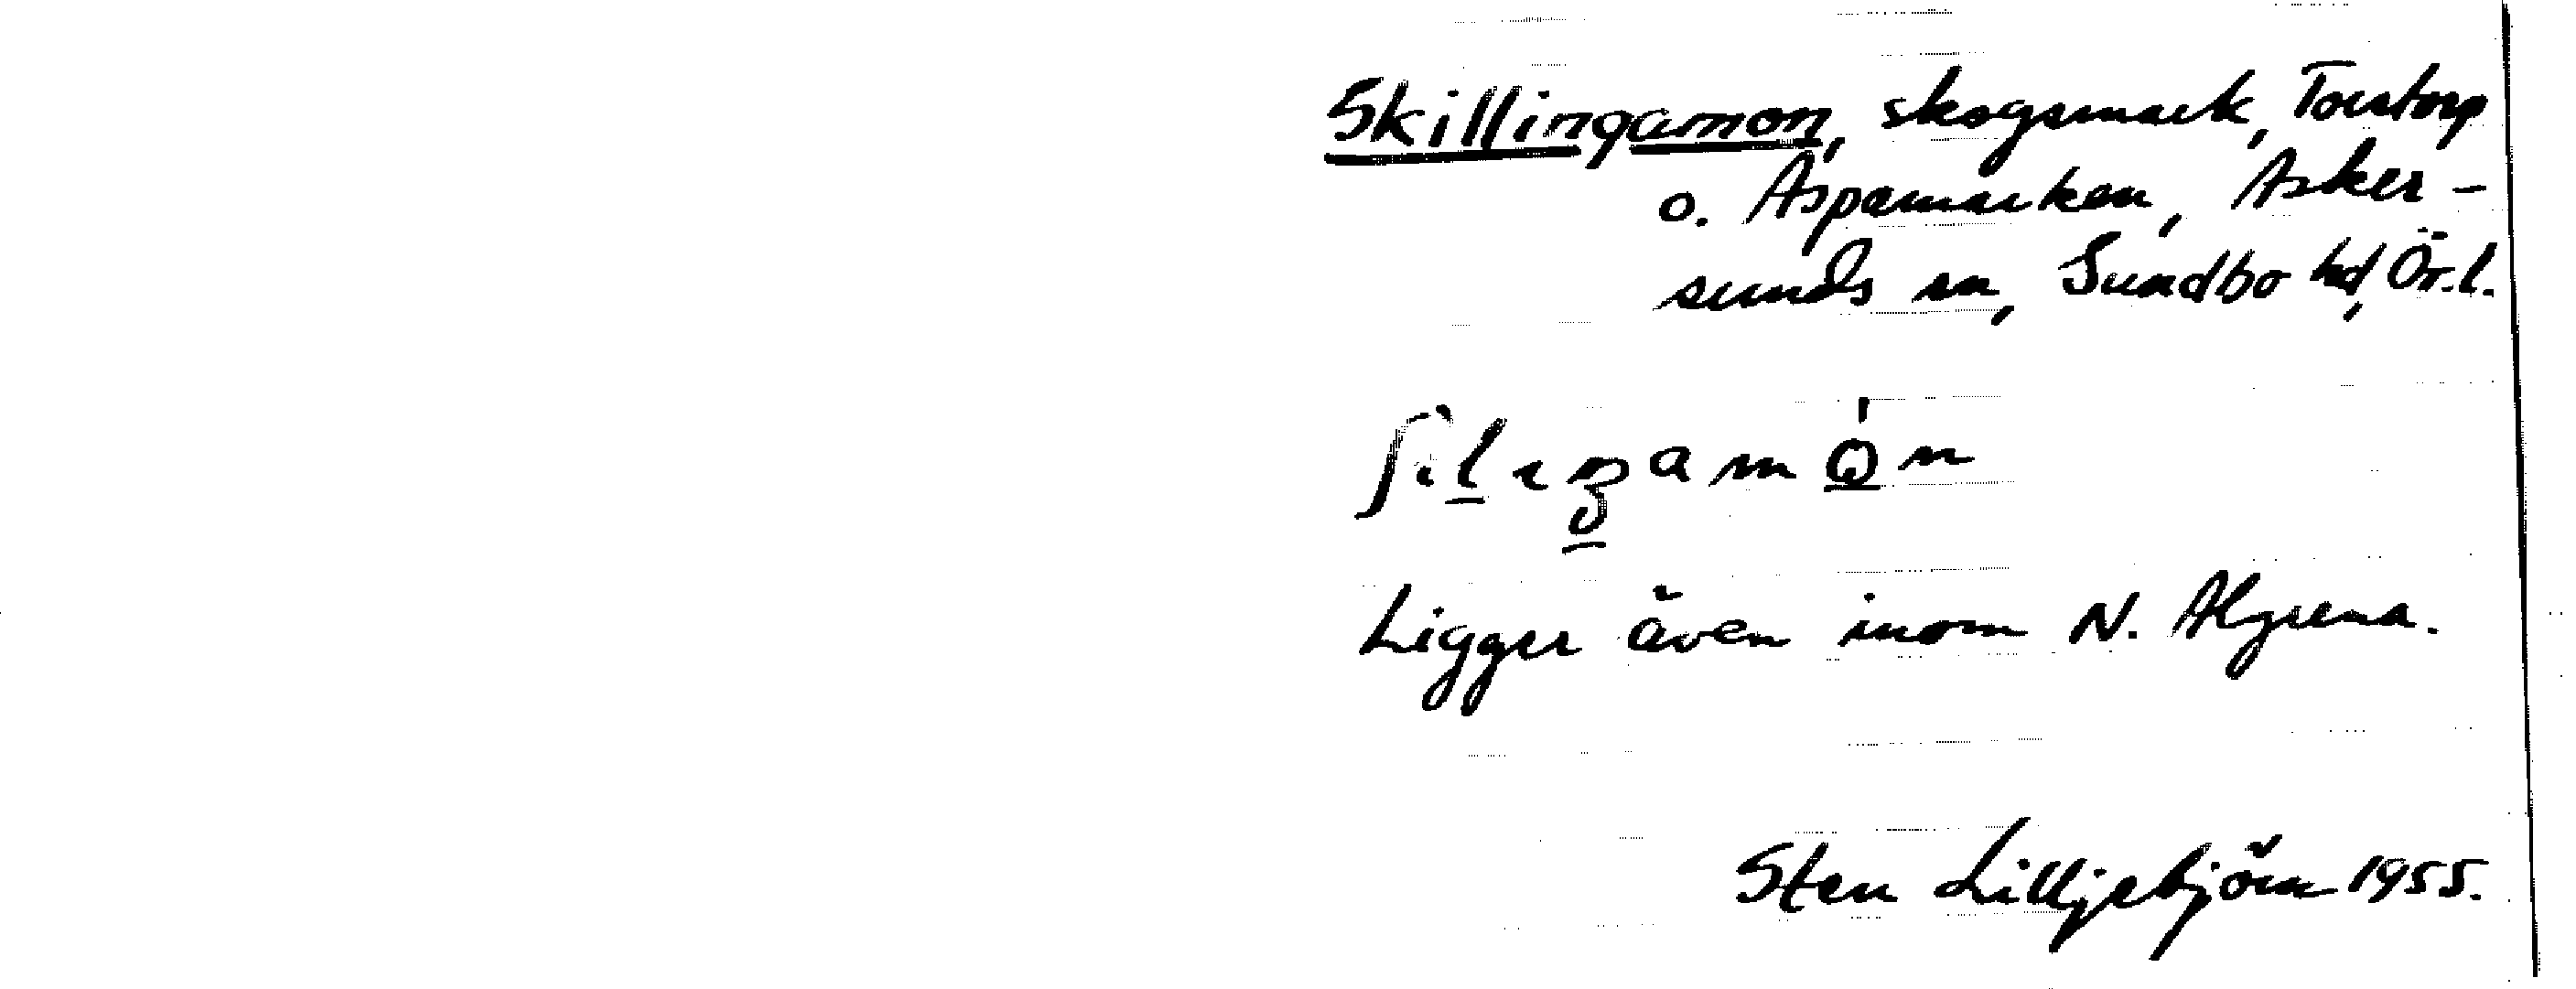 Skillingamon, skogsmark, Torstorp
o. Aspamarken, Asker-
sunds sn, Sundbo hd, Ör.l.
Ligger även inom N. Algrena.
Sten Lilljebjörn 1955.